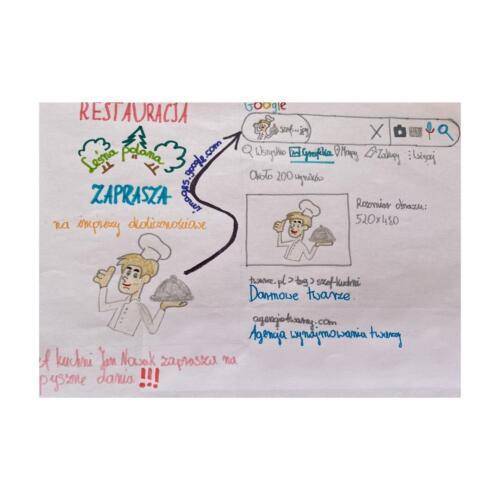 RESTAURACJA
Leśna polana
ZAPRASZA
na imprezy okolicznościowe
images.google.com
Szef kuchni Jan Nowak zaprasza na
pyszne dania !!!
Google
szef...jpg X
Wszystko Grafika Mapy Zakupy Więcej
Około 200 wyników
Rozmiar obrazu:
520x480
twarze.pl > tag > szef-kuchni
Darmowe twarze
agencjatwarzy.com
Agencja wynajmowania twarzy